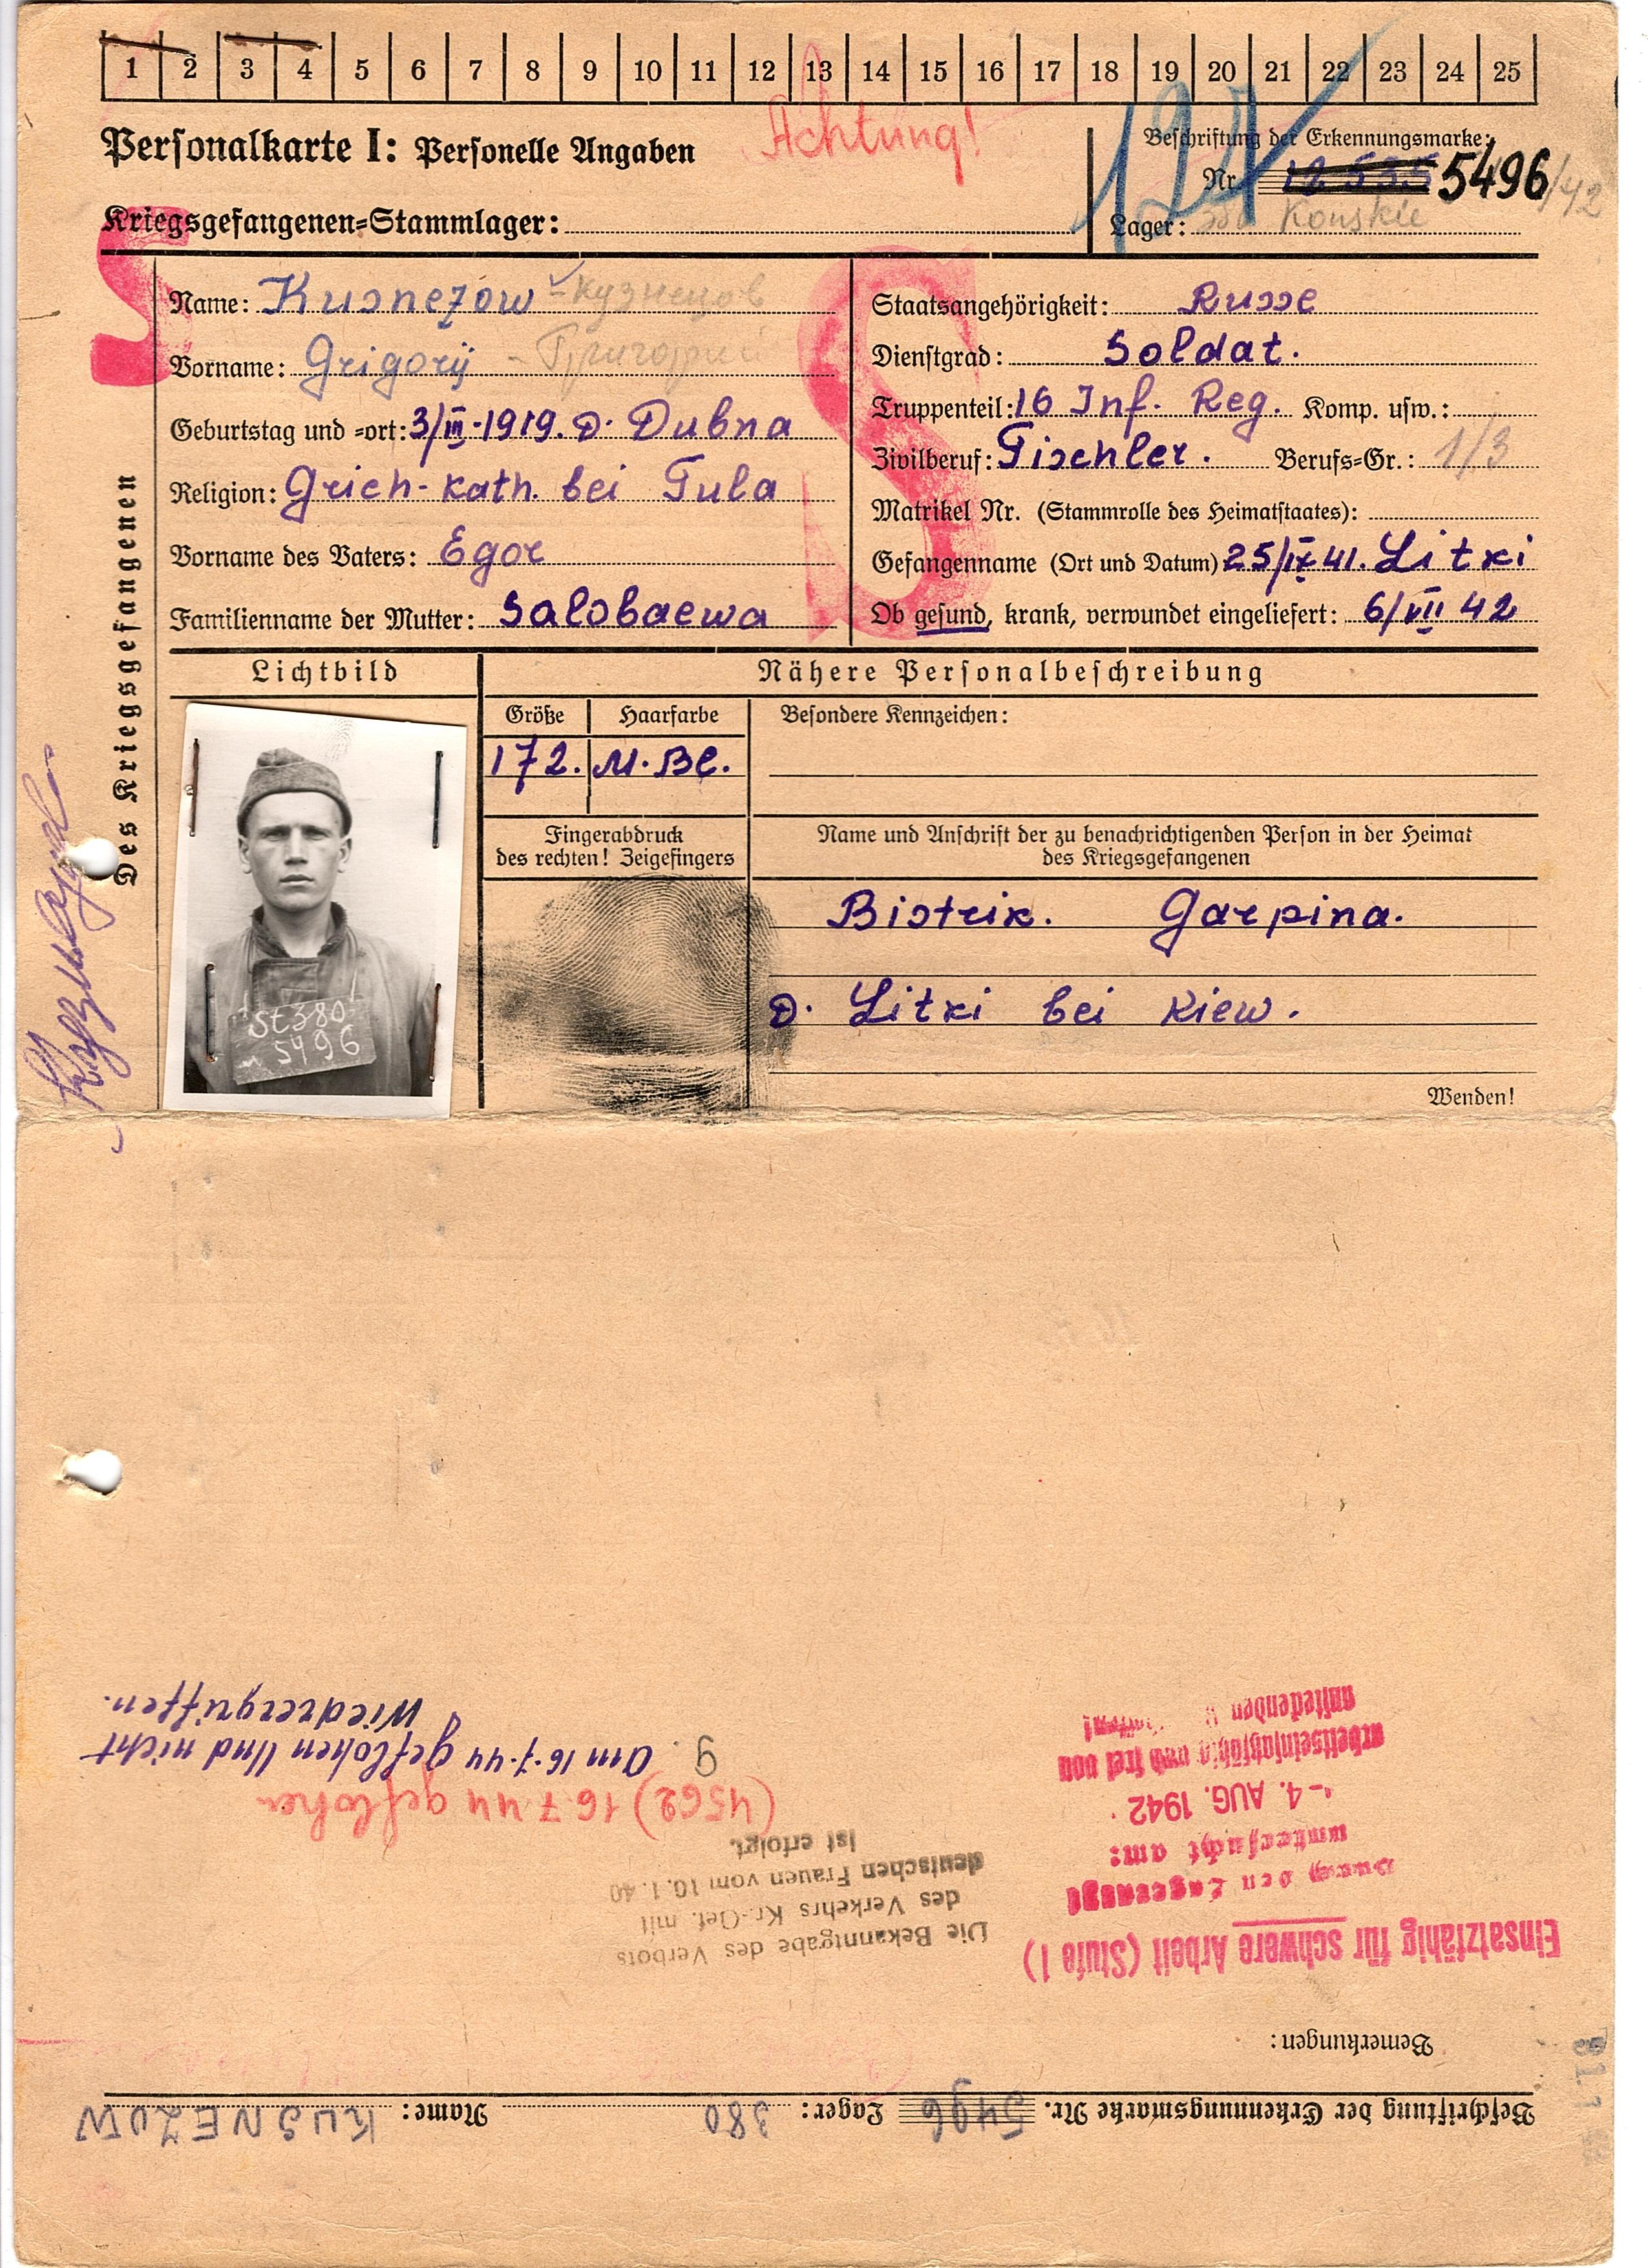 1 2 3 4 5 6 7 8 9 10 11 12 13 14 15 16 17 18 19 20 21 22 23 24 25
Achtung!
Personalkarte I: Personelle Angaben
Beschriftung der Erkennungsmarke:
Nr. 12 535 5496/42
Kriegsgefangenen-Stammlager:
Lager: Konskie
Des Kriegsgefangenen
S
S
Name: Kusnezow - Кузнецов
Vorname: Grigorij - Григорий
Geburtstag und -ort: 3/III-1919. D. Dubna
Religion: Griech-Kath. bei Tula
Vorname des Vaters: Egor
Familienname der Mutter: Salobaewa
Staatsangehörigkeit: Russe
Dienstgrad: Soldat.
Truppenteil: 16 Inf. Reg. Komp. usw.:
Zivilberuf: Tischler. Berufs-Gr.: 1/3
Matrikel Nr. (Stammrolle des Heimatstaates):
Gefangenname (Ort und Datum) 25/IX 41. Litki
Ob gesund, krank, verwundet eingeliefert: 6/VII 42
Lichtbild
Nähere Personalbeschreibung
Größe
Haarfarbe
Besondere Kennzeichen:
172.
M. Bl.
Fingerabdruck
des rechten! Zeigefingers
Name und Anschrift der zu benachrichtigenden Person in der Heimat
des Kriegsgefangenen
Bistrik. Garpina.
D. Litki bei Kiew.
St 380
5496
Wenden!
Beschriftung der Erkennungsmarke Nr. 5496 Lager: 380 Name: KUSNEZOW
Bemerkungen:
Einsatzfähig für schwere Arbeit (Stufe I)
Durch den Lagerarzt
untersucht am:
- 4. AUG. 1942
arbeitseinsatzfähig und frei von
ansteckenden
Die Bekanntgabe des Verbots
des Verkehrs Kr.-Gef. mit
deutschen Frauen vom 10.1.40
ist erfolgt.
(4562) 16 7 44 geflohen
g. am 16.7.44 geflohen und nicht
Wiedrergriffen.